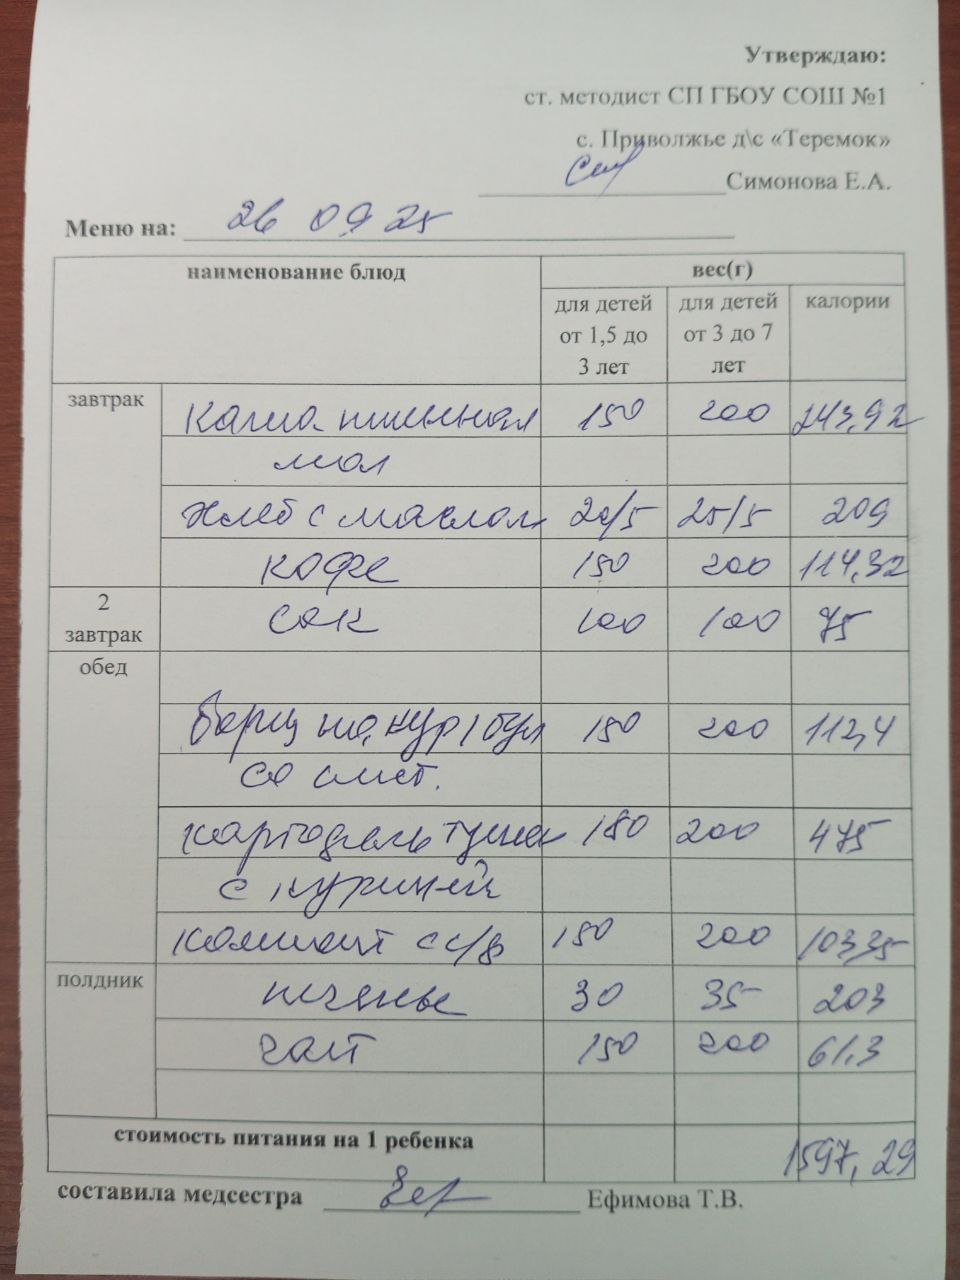 Утверждаю:
ст. методист СП ГБОУ СОШ №1
с. Приволжье д\с «Теремок»
Симонова Е.А.
Меню на: 26 09 25
наименование блюд вес(г)
для детей от 1,5 до 3 лет для детей от 3 до 7 лет калории
завтрак Каша пшенная 150 200 243,92
мол
хлеб с маслом 20/5 25/5 209
кофе 150 200 114,32
2 завтрак сок 100 100 75
обед
борщ на кур/бул 150 200 112,4
со смет.
картофель туше 180 200 475
с курицей
компот с с/ф 150 200 103,35
полдник печенье 30 35 203
чай 150 200 61,3
стоимость питания на 1 ребенка 1597,29
составила медсестра Ефимова Т.В.